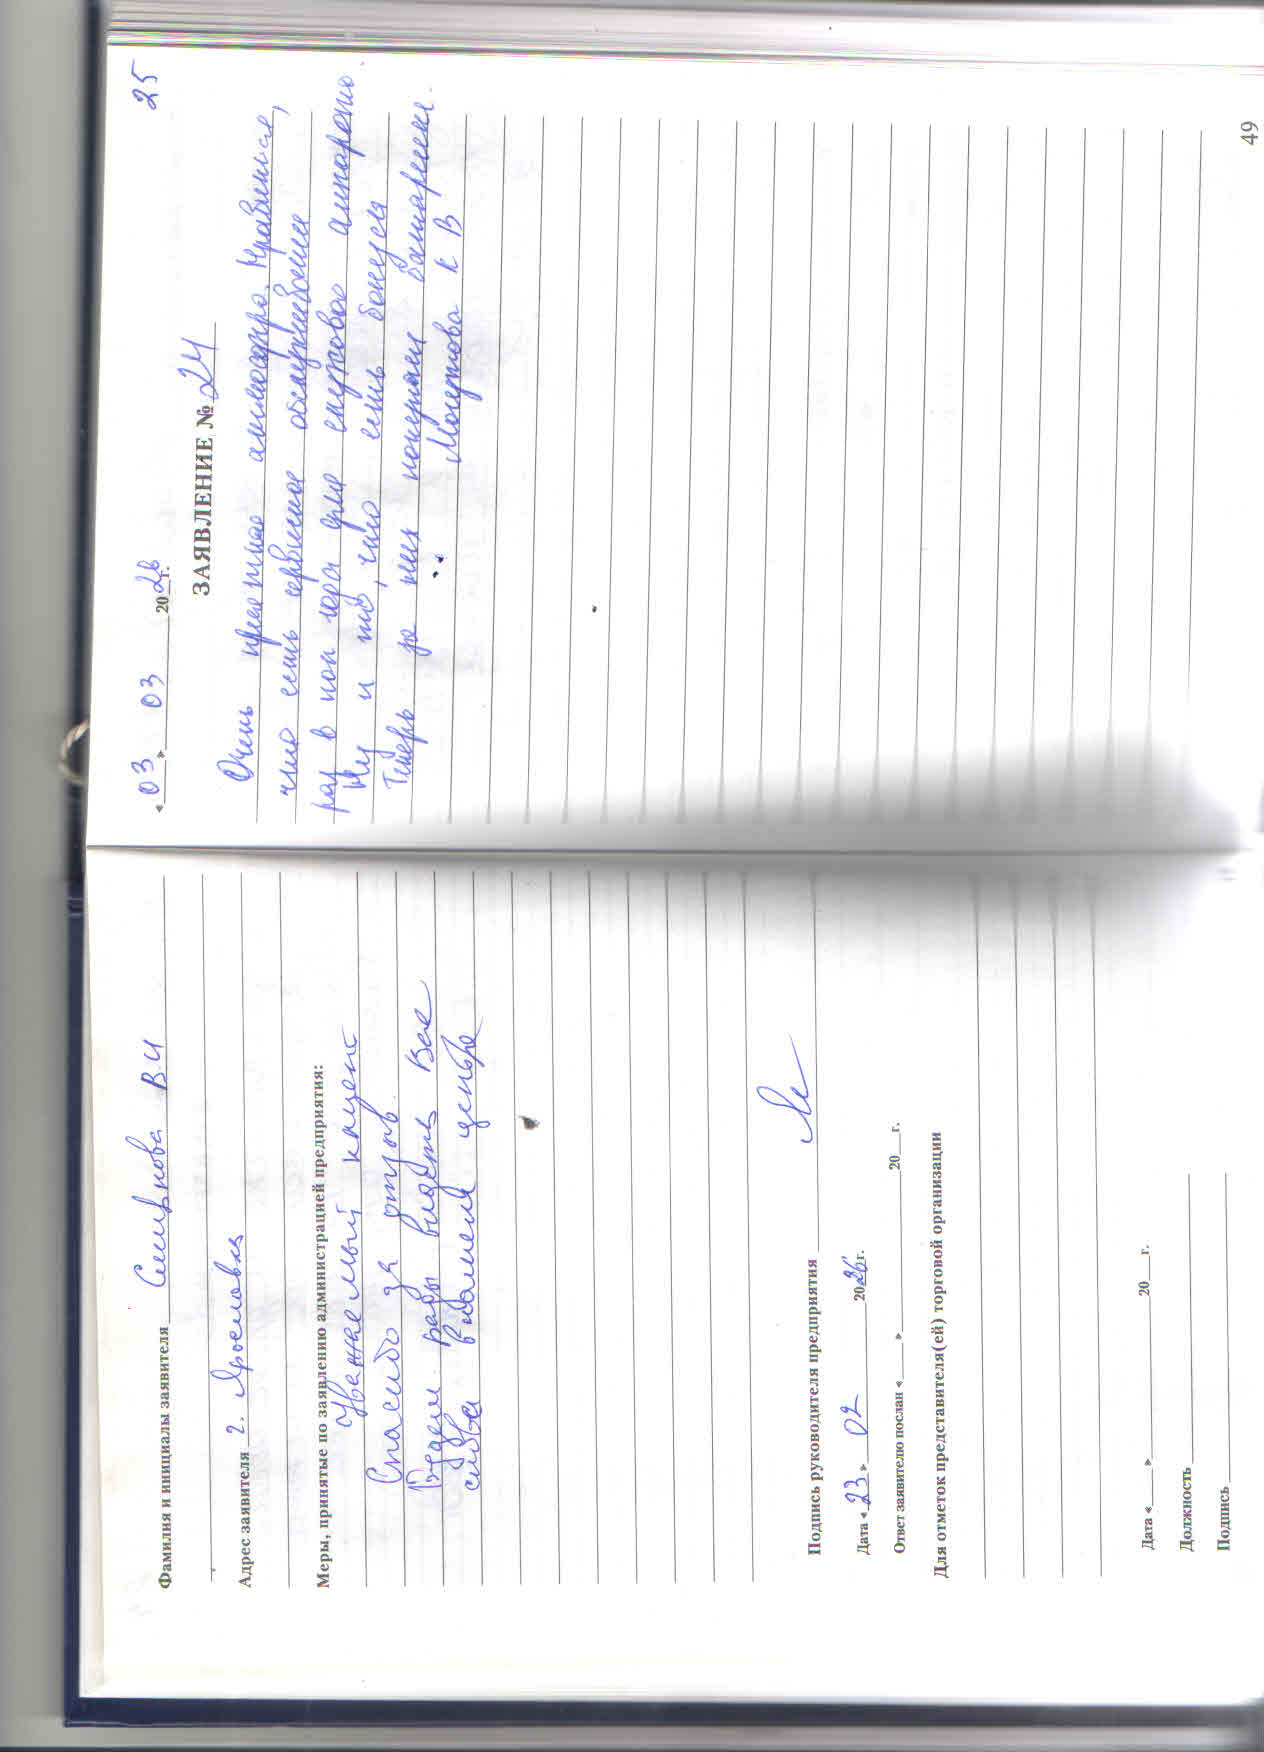 Фамилия и инициалы заявителя Смирнова В.И
Адрес заявителя г. Ярославль
Меры, принятые по заявлению администрацией предприятия:
Уважаемый пациент
Спасибо за отзыв.
Будем рады видеть Вас
снова в нашем центре
Подпись руководителя предприятия
Дата «23» 02 2026г.
Ответ заявителю послан «___» 20__г.
Для отметок представителя(ей) торговой организации
Дата «___» 20__г.
Должность
Подпись
25
«03» 03 2026г.
ЗАЯВЛЕНИЕ № 24
Очень приятная атмосфера. Нравится,
что есть сервисное обслуживание
раз в пол года для слухового аппарата.
Ну и то, что есть бонусы
Теперь за них покупаем батарейки.
К В
49